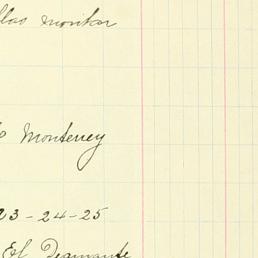 llas monitor
Monterrey
23-24-25
El Diamante